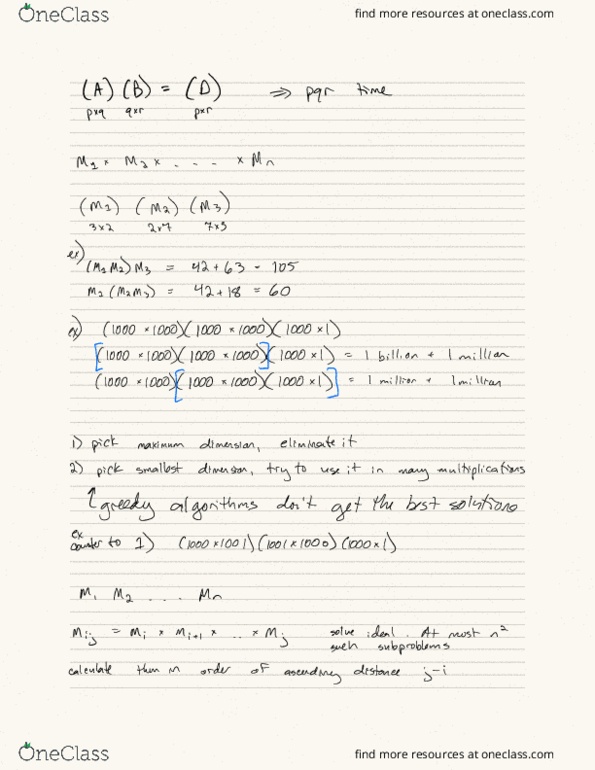 OneClass find more resources at oneclass.com
(A) (B) = (D) ⇒ pqr time
pxq qxr pxr
M1 × M2 × . . . × Mn
(M1) (M2) (M3)
3x2 2x7 7x3
ex)
(M1M2)M3 = 42 + 63 = 105
M1(M2M3) = 42 + 18 = 60
ex) (1000 × 1000)(1000 × 1000)(1000 × 1)
[(1000 × 1000)(1000 × 1000)](1000 × 1) = 1 billion + 1 million
(1000 × 1000)[(1000 × 1000)(1000 × 1)] = 1 million + 1 million
1) pick maximum dimension, eliminate it
2) pick smallest dimension, try to use it in many multiplications
↑ greedy algorithms don't get the best solutions
ex
counter to 1) (1000 × 1001)(1001 × 1000)(1000 × 1)
M1 M2 . . . Mn
Mij = Mi × Mi+1 × .. × Mj solve ideal. At most n²
such subproblems
calculate them in order of ascending distance j-i
OneClass find more resources at oneclass.com